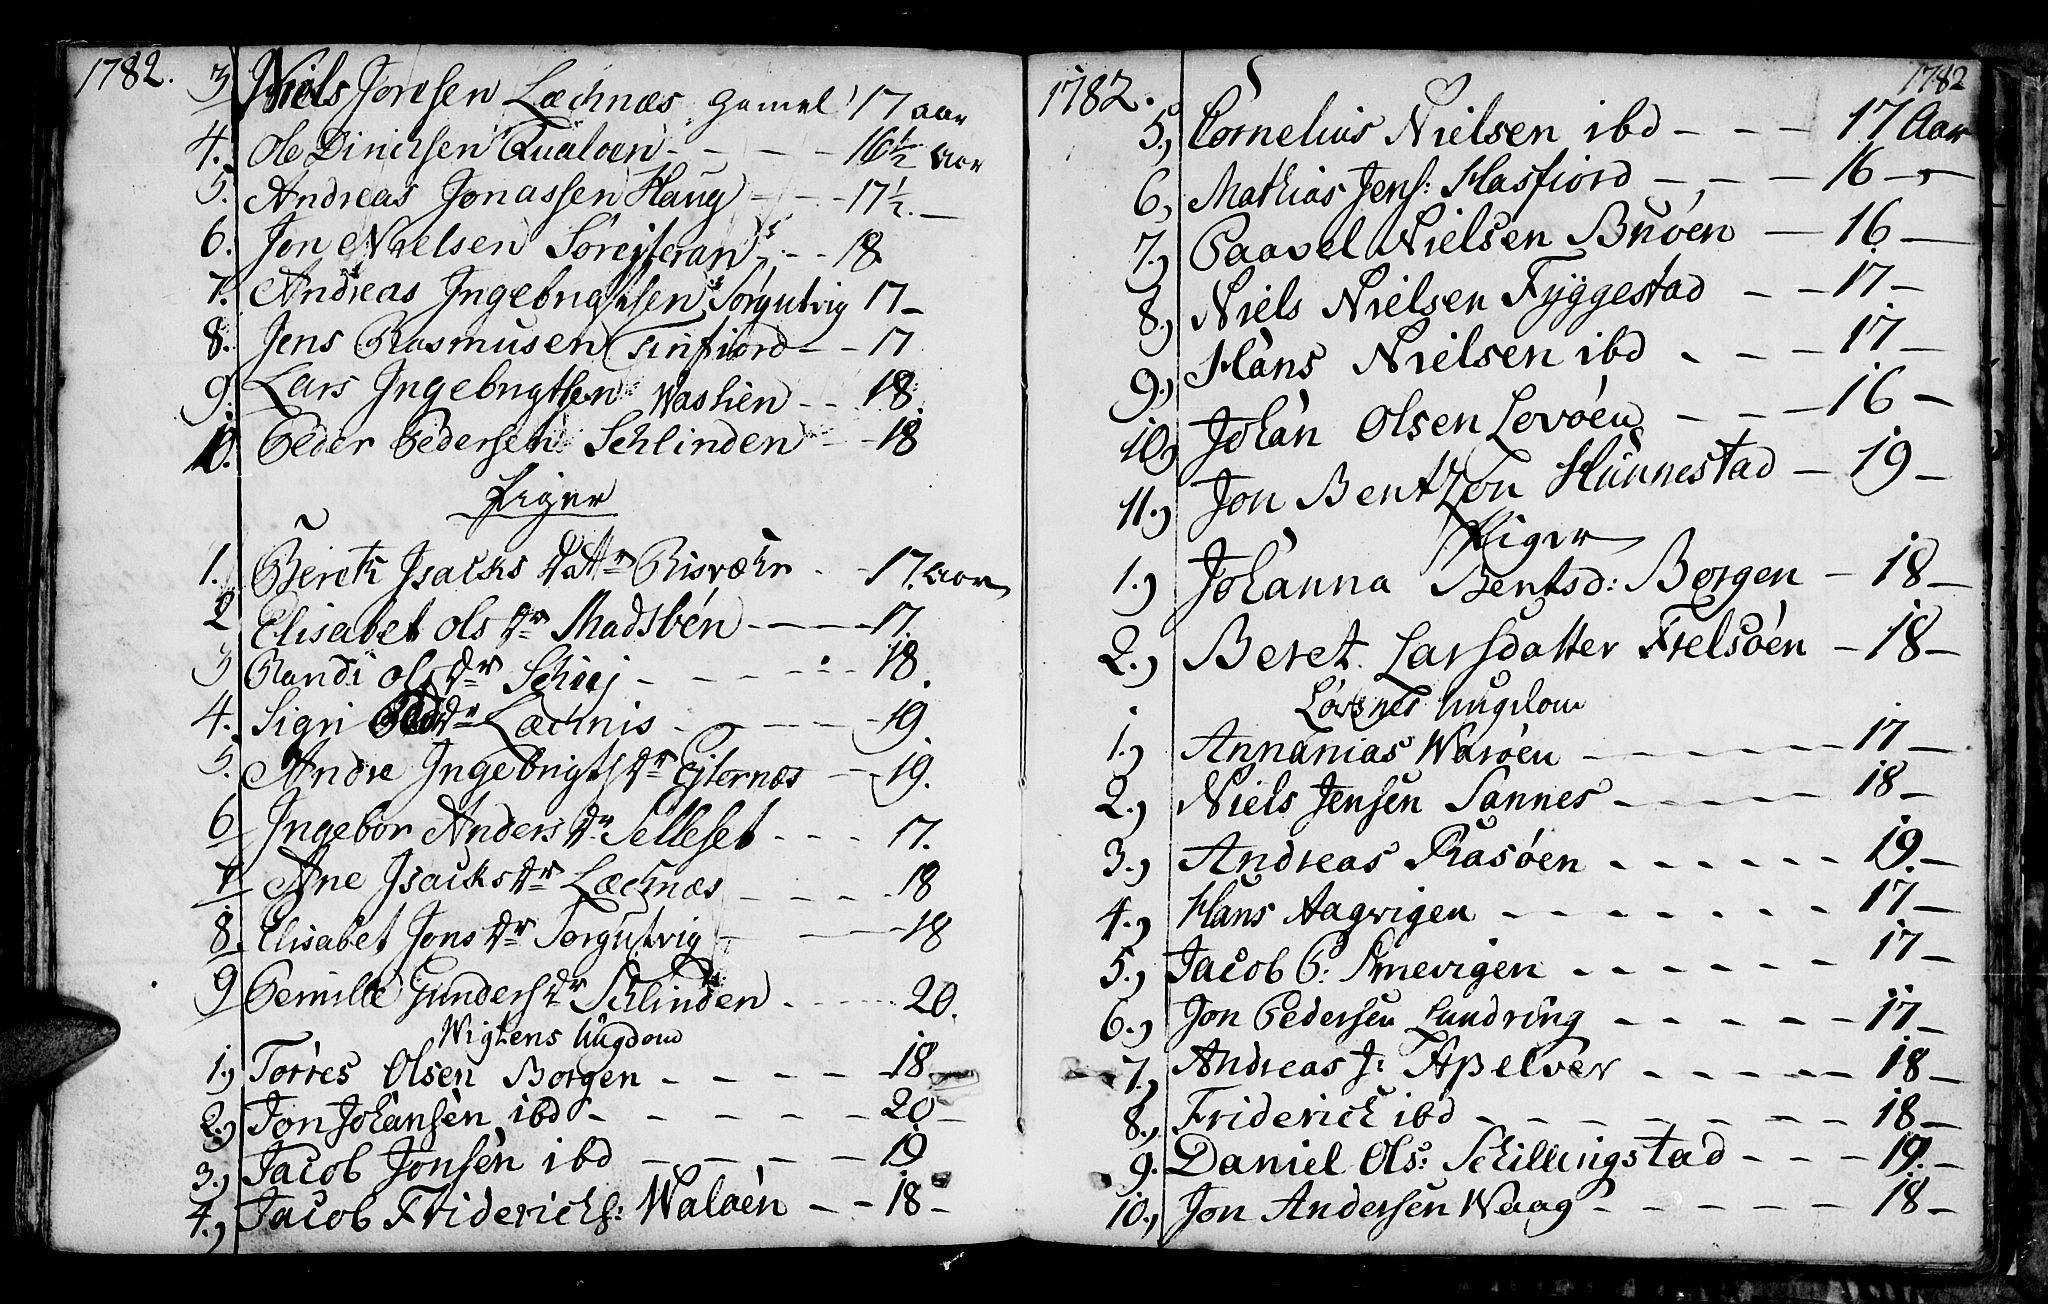 1782.
3 Niels Jonsen Læchnæs gamel 17 aar
4. Ole Dinesen Qualøen - - - - 16½ aar
5. Andreas Jonassen Haug - - - 17½. -
6. Jon Nielsen - - 18
7. Andreas Ingebrigtsen Torgutvig 17 -
8. Jens Rasmusen - - 17
9. Lars Ingebrigtsen - - 18.
10. Peder Pedersen Schlinden - - 18
Piger
1. Beret Isachs Datt: Risvær - - 17. aar
2 Elisabet Ols Dr Madsbøn - - - - 17.
3 Randi Ols Dr Schiej - - - - - 18.
4. Sigri Dr Læchnis - - - - - 19.
5. Andre Ingebrigts Dr Eiternæs - - 19.
6 Ingebor Anders Dr Selleset - - - 17.
7 Ane Isachs Dr Læchnæs - - - - 18
8. Elisabet Jons Dr Torgutvig - - - 18
9 Pernille Gunders Dr Schlinden - - - 20.
Nigtens ungdom
1.) Torres Olsen Borgen - - - - - 18 -
2.) Jon Johansen ibd - - - - - - 20 -
3.) Jacob Jonsen ibd - - - - - 19
4.) Jacob Friderichs: Waløen - - 18 -
1782.
1782
5.) Cornelius Nielsen ibd - - - 17 Aar
6.) Mathias Jens: Hasfiord - - - 16 -
7.) Paavel Nielsen Buøen - 16 -
8.) Niels Nielsen Fyggestad - - 17 -
9.) Hans Nielsen ibd - - - 17 -
10.) Johan Olsen Lovøen - - - 16 -
11.) Jon Bentzon Hunnestad - 19 -
Piger
1.) Johanna Bentsd: Borgen - 18 -
2.) Beret Larsdatter Fielsøen - 18 -
ungdom
1.) Annanias Warøen - - - - - 17 -
2.) Niels Jensen Sannes - - - - - 18 -
3.) Andreas Rasøen - - - - - - 19 -
4.) Hans Aagvigen - - - - - - - 17 -
5.) Jacob P: Smevigen - - - - - - 17 -
6.) Jon Pedersen Lundring - - - - - 17 -
7.) Andreas J: Apelvær - - - - - 18 -
8.) Friderich ibd - - - - - - - 18 -
9. Daniel Ols: Schillingstad - - - 19 -
10.) Jon Andersen Waag - - - - - 18 -